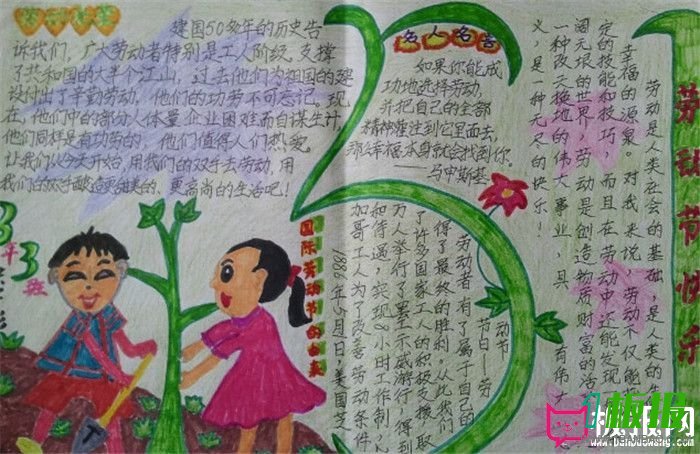 建国50多年的历史告
诉我们,广大劳动者特别是工人阶级,支撑
了共和国的大半个江山,过去他们为祖国的建
设付出了辛勤劳动,他们的功劳不可忘记。现
在,他们中的部分人体量企业困难而自谋生计,
他们同样是有功劳的,他们值得人们热爱。
让我们从今天开始,用我们的双手去劳动,用
我们的双手酿造更纯美的、更高尚的生活吧!
名人名言
如果你能成
功地选择劳动,
并把自己的全部
精神灌注到它里面去,
那么幸福本身就会找到你。
劳动节快乐
劳动是人类社会的基础,是人类的
幸福的源泉。对我来说,劳动不仅
定的技能和技巧,而且在劳动中还能发现
阔无垠的世界,劳动是创造物质财富的活
一种改天换地的伟大事业,具有伟大
义,是一种无尽的快乐!
国际劳动节的由来
1886年5月1日,美国芝
加哥工人为了改善劳动条件
和待遇,实现8小时工作制,
万人举行了罢工示威游行,得到
了许多国家工人的积极支援,取
得了最终的胜利,从此我们
劳动者有了属于自己的
节日——劳
动节
板报网
www.banbaowang.com